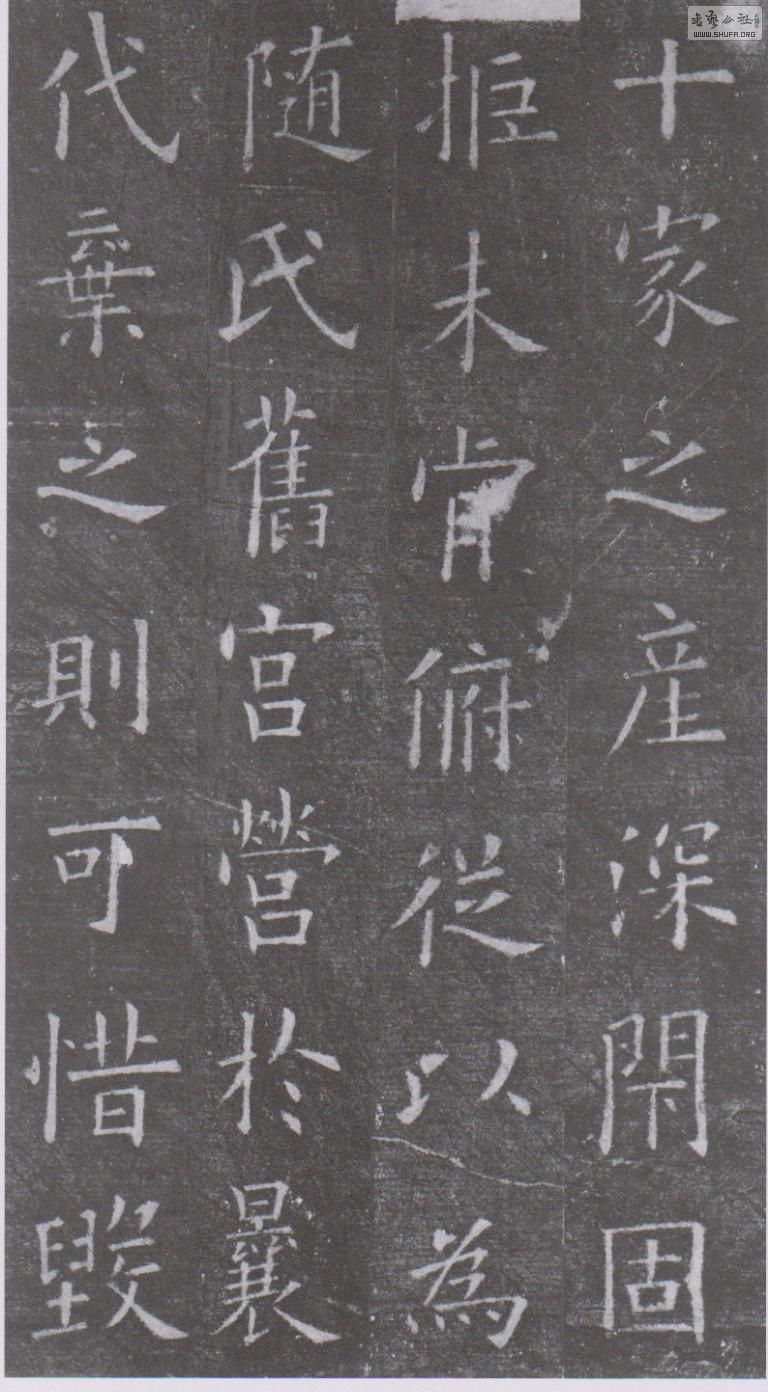 十家之產深閇固
拒未肯俯従以為
随氏舊宮營於曩
代棄之則可惜毀
書藝公社
WWW.SHUFA.ORG